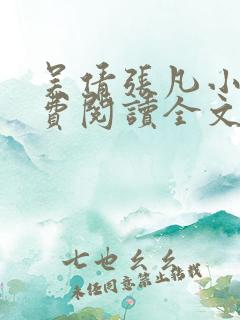 吴倩張凡小
費閱讀全文
七也幺幺
未经同意禁止转载